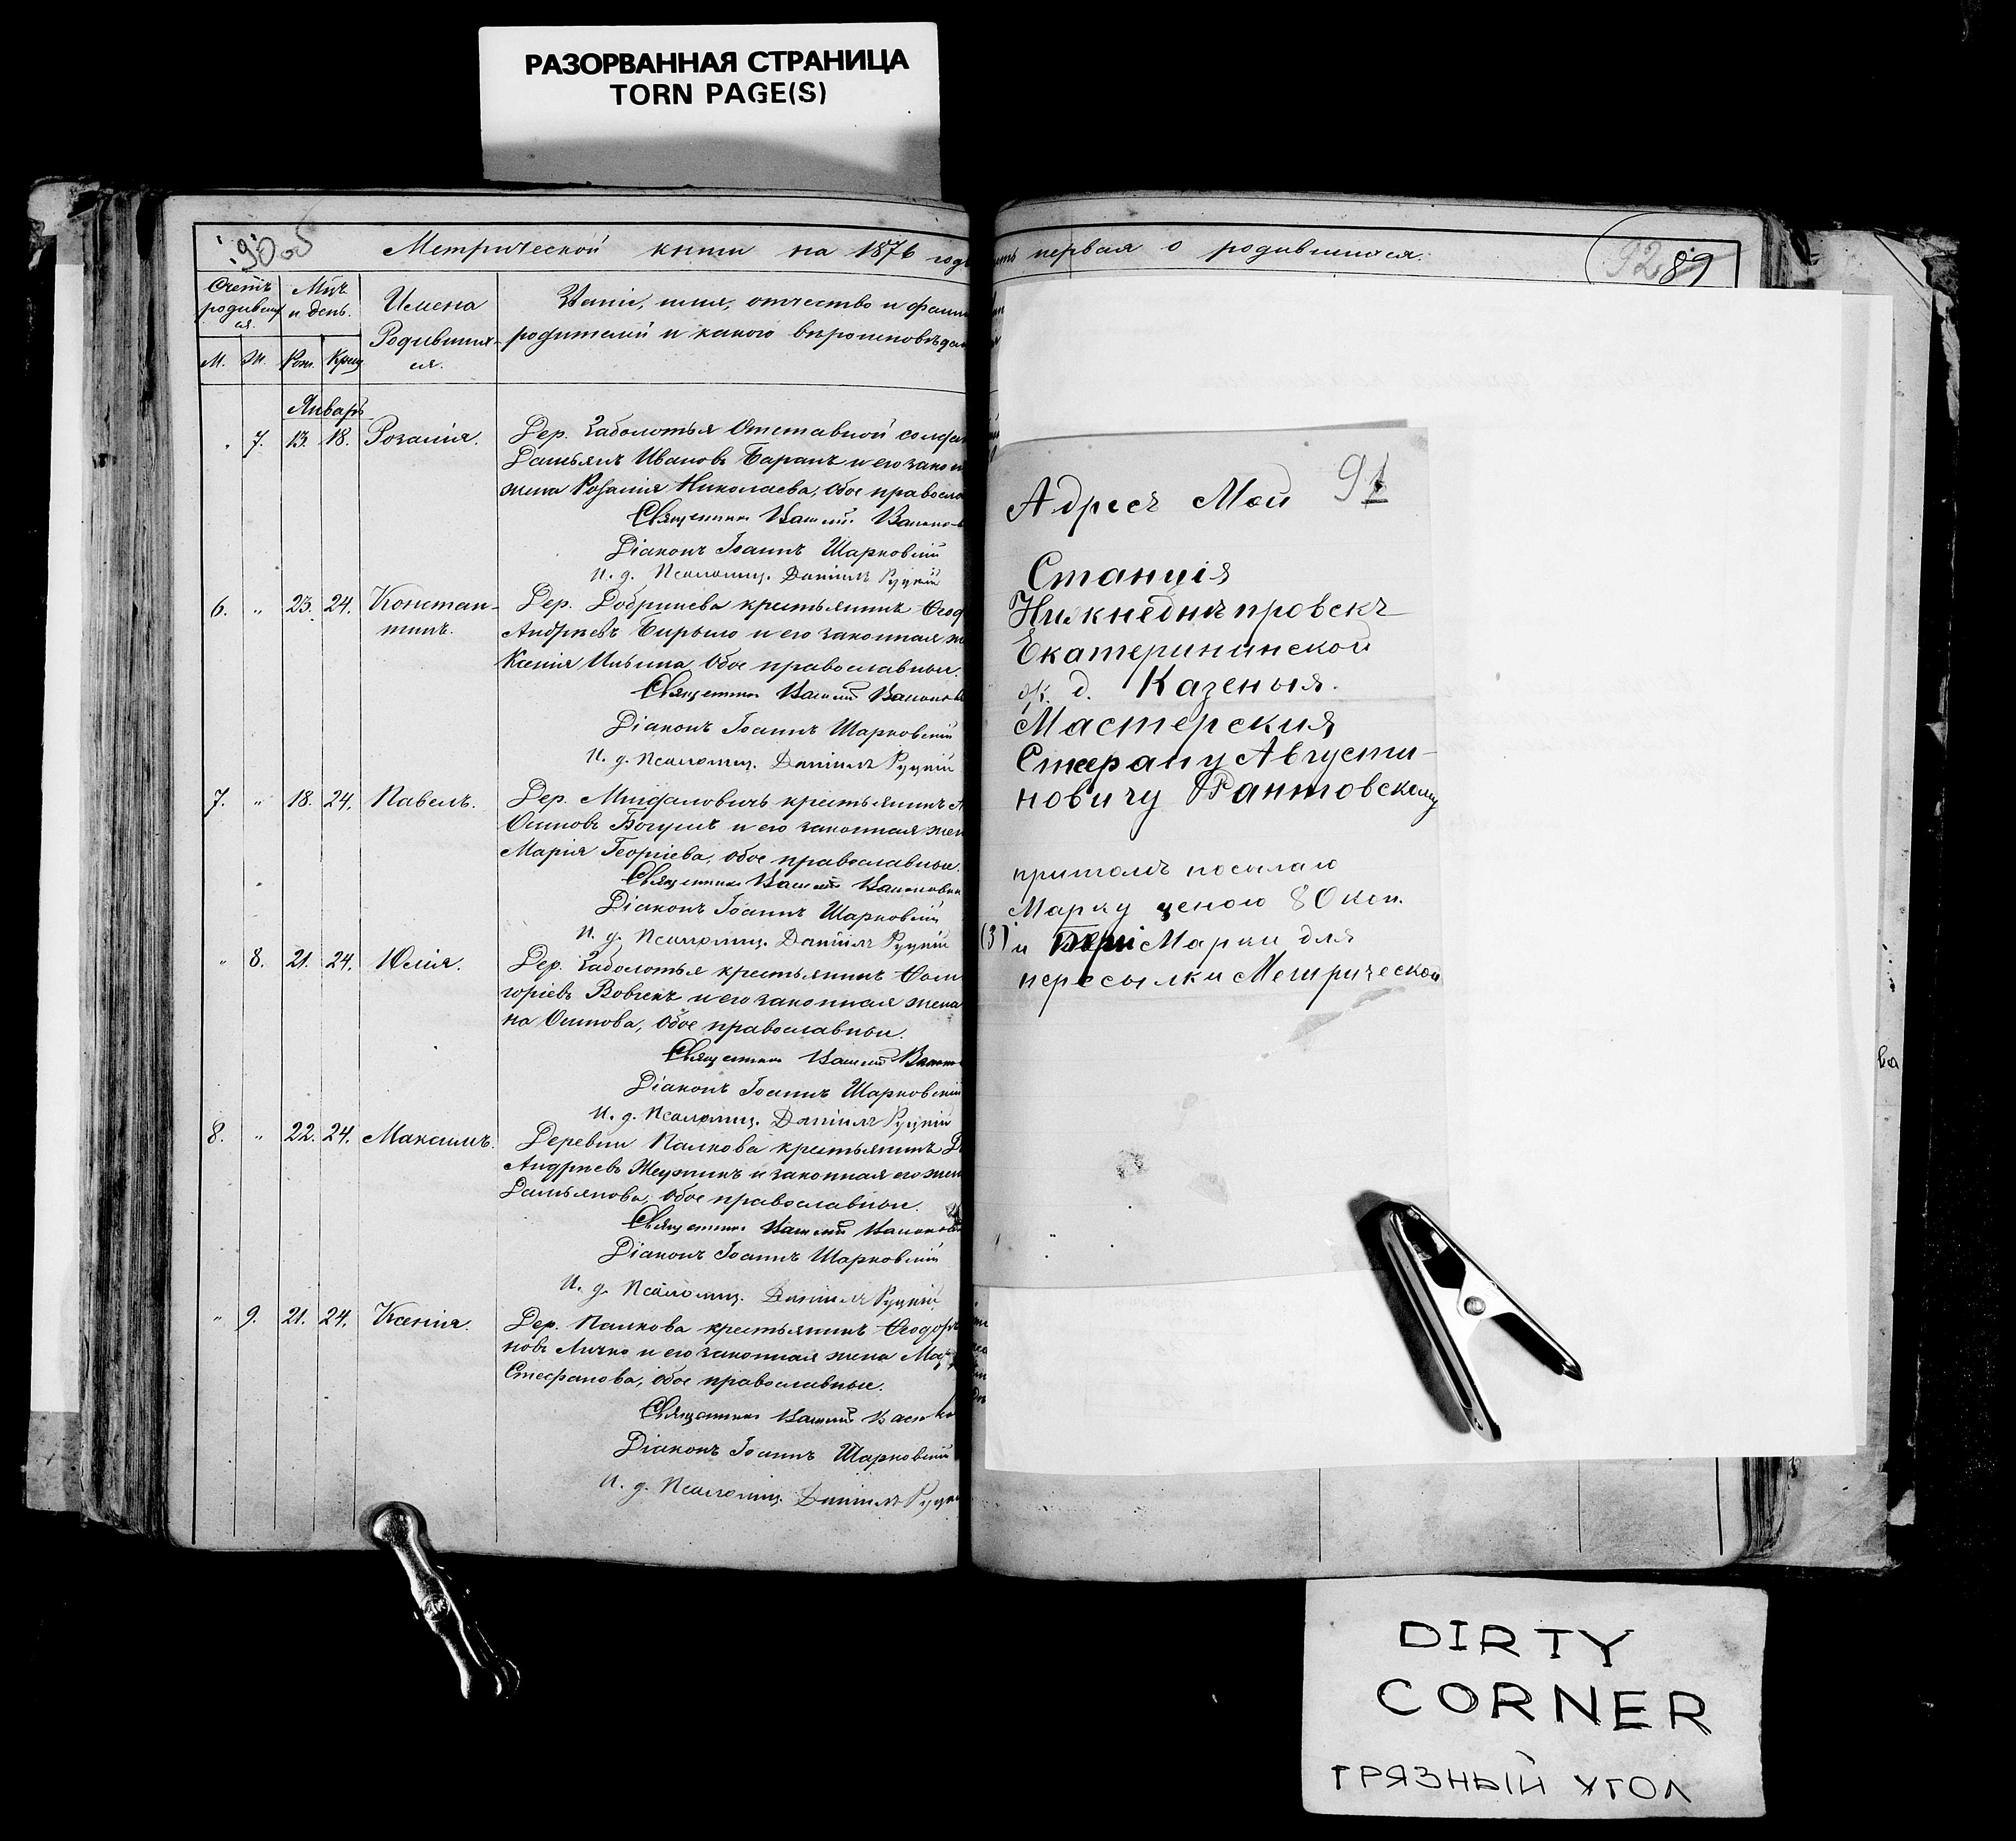 РАЗОРВАННАЯ СТРАНИЦА
TORN PAGE(S)
Метрической книги на 1876 годъ
Счетъ родившихся. Мцъ и день. Имена Родившихся.
Званіе, имя, отчество и фами
родителей и какого вѣроисповѣдан
М. Ж. Рож. Крещ.
Январь
7. 13. 18. Розалія. Дер. Заболотья Отставной солда
Дамьянъ Ивановъ Баранъ и его закон
жена Розалія Николаева, Обое правосла
Священникъ Василій
Діаконъ Іоаннъ Шарковскій
И. д. Псаломщ. Даніилъ Руцкій
6. „ 23. 24. Констан- Дер. Добринева крестьянинъ Ѳеод
тинъ. Андреевъ и его законная ж
Ксенія Ильина, Обое православные.
Священникъ Василій
Діаконъ Іоаннъ Шарковскій
И. д. Псаломщ. Даніилъ Руцкій
7. „ 18. 24. Павелъ. Дер. крестьянинъ
Осиповъ и его законная жен
Марія Георгіева, Обое православные.
Священникъ Василій
Діаконъ Іоаннъ Шарковскій
И. д. Псаломщ. Даніилъ Руцкій
„ 8. 21. 24. Юлія. Дер. Заболотья крестьянинъ
горіевъ и его законная жена
на Осипова, Обое православные.
Священникъ Василій
Діаконъ Іоаннъ Шарковскій
И. д. Псаломщ. Даніилъ Руцкій
8. „ 22. 24. Максимъ. Деревни Палкова крестьянинъ
Андреевъ и законная его жен
Дамьянова, Обое православные.
Священникъ Василій
Діаконъ Іоаннъ Шарковскій
И. д. Псаломщ. Даніилъ Руцкій
„ 9. 21. 24. Ксенія. Дер. Палкова крестьянинъ
новъ Личко и его законная жена Мар
Стефанова, обое православные.
Священникъ Василій
Діаконъ Іоаннъ Шарковскій
И. д. Псаломщ. Даніилъ
первая о родившихся.
92 89
91
Адресъ Мой
Станція
Нижнеднѣпровскъ
Екатерининской
ж. д. Казеныя.
Мастерския
Стефану Августи-
новичу Рантовскому
притомъ посылаю
Марку ценою 80 коп.
(3) и Марки для
пересылки Метрической
ва
DIRTY
CORNER
ГРЯЗНЫЙ УГОЛ